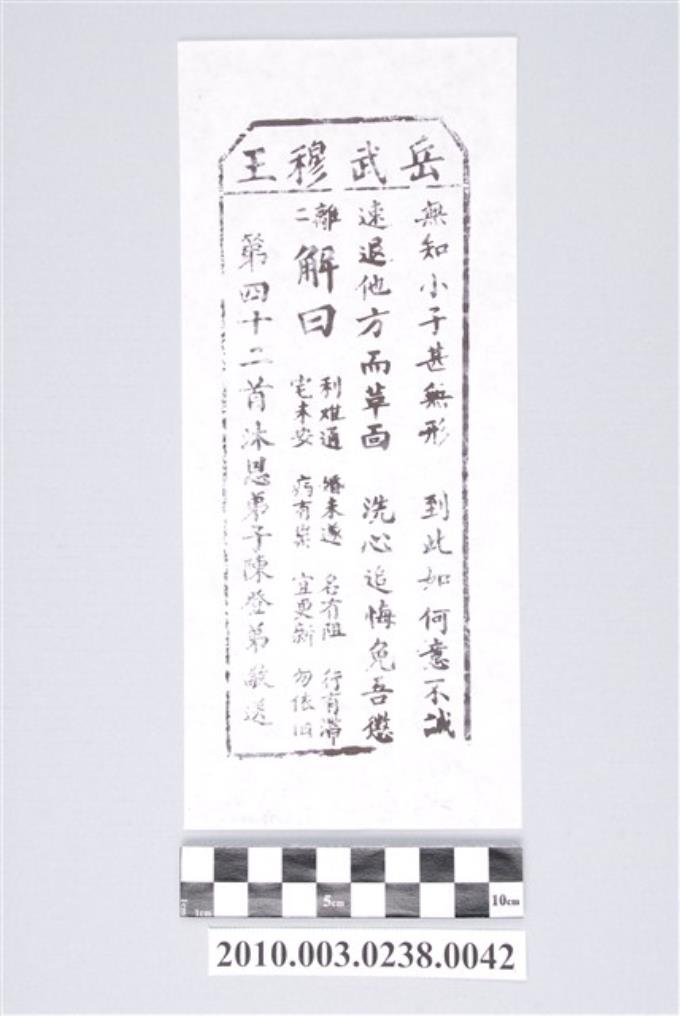 岳武穆王
無知小子甚無形 到此如何意不誠
速退他方而革面 洗心追悔免吾懲
離二
解曰
利難通 婚未遂 名有阻 行有滯
宅未安 病有祟 宜更新 勿依旧
第四十二首沐恩弟子陳登弟敬送
1cm 5cm 10cm
2010.003.0238.0042